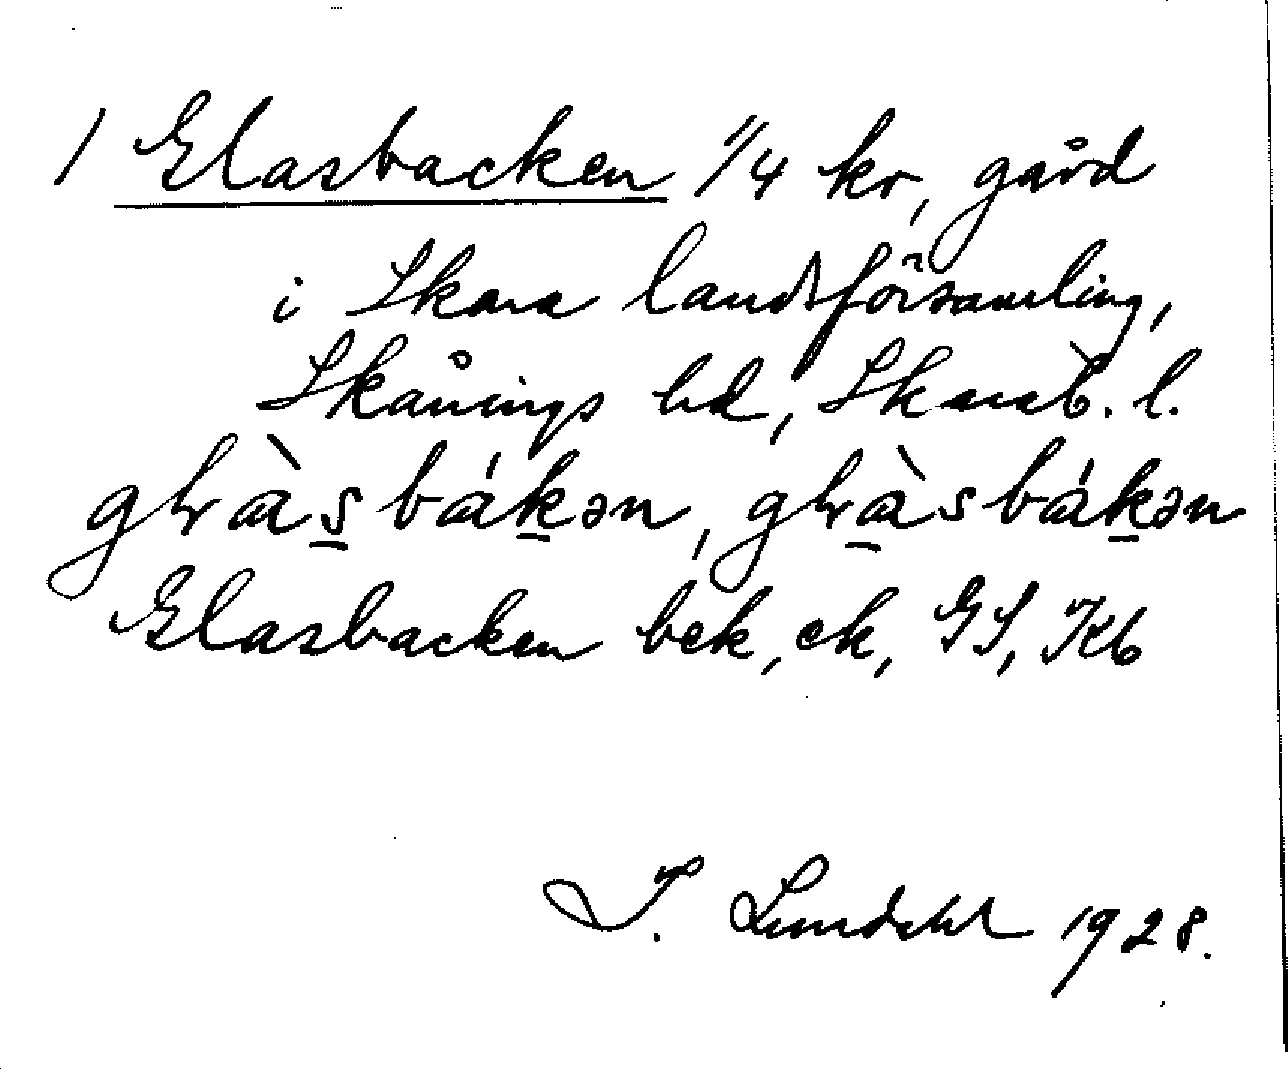 1 Glasbacken 1/4 kr, gård
i Skara landsförsamling,
Skånings hd, Skarab. l.
glɑ̀s̲bɑ́k̲ən, glɑ̲̀sbɑ́k̲ən
Glasbacken bek, ek, GS, Kb
I. Lundahl 1928.